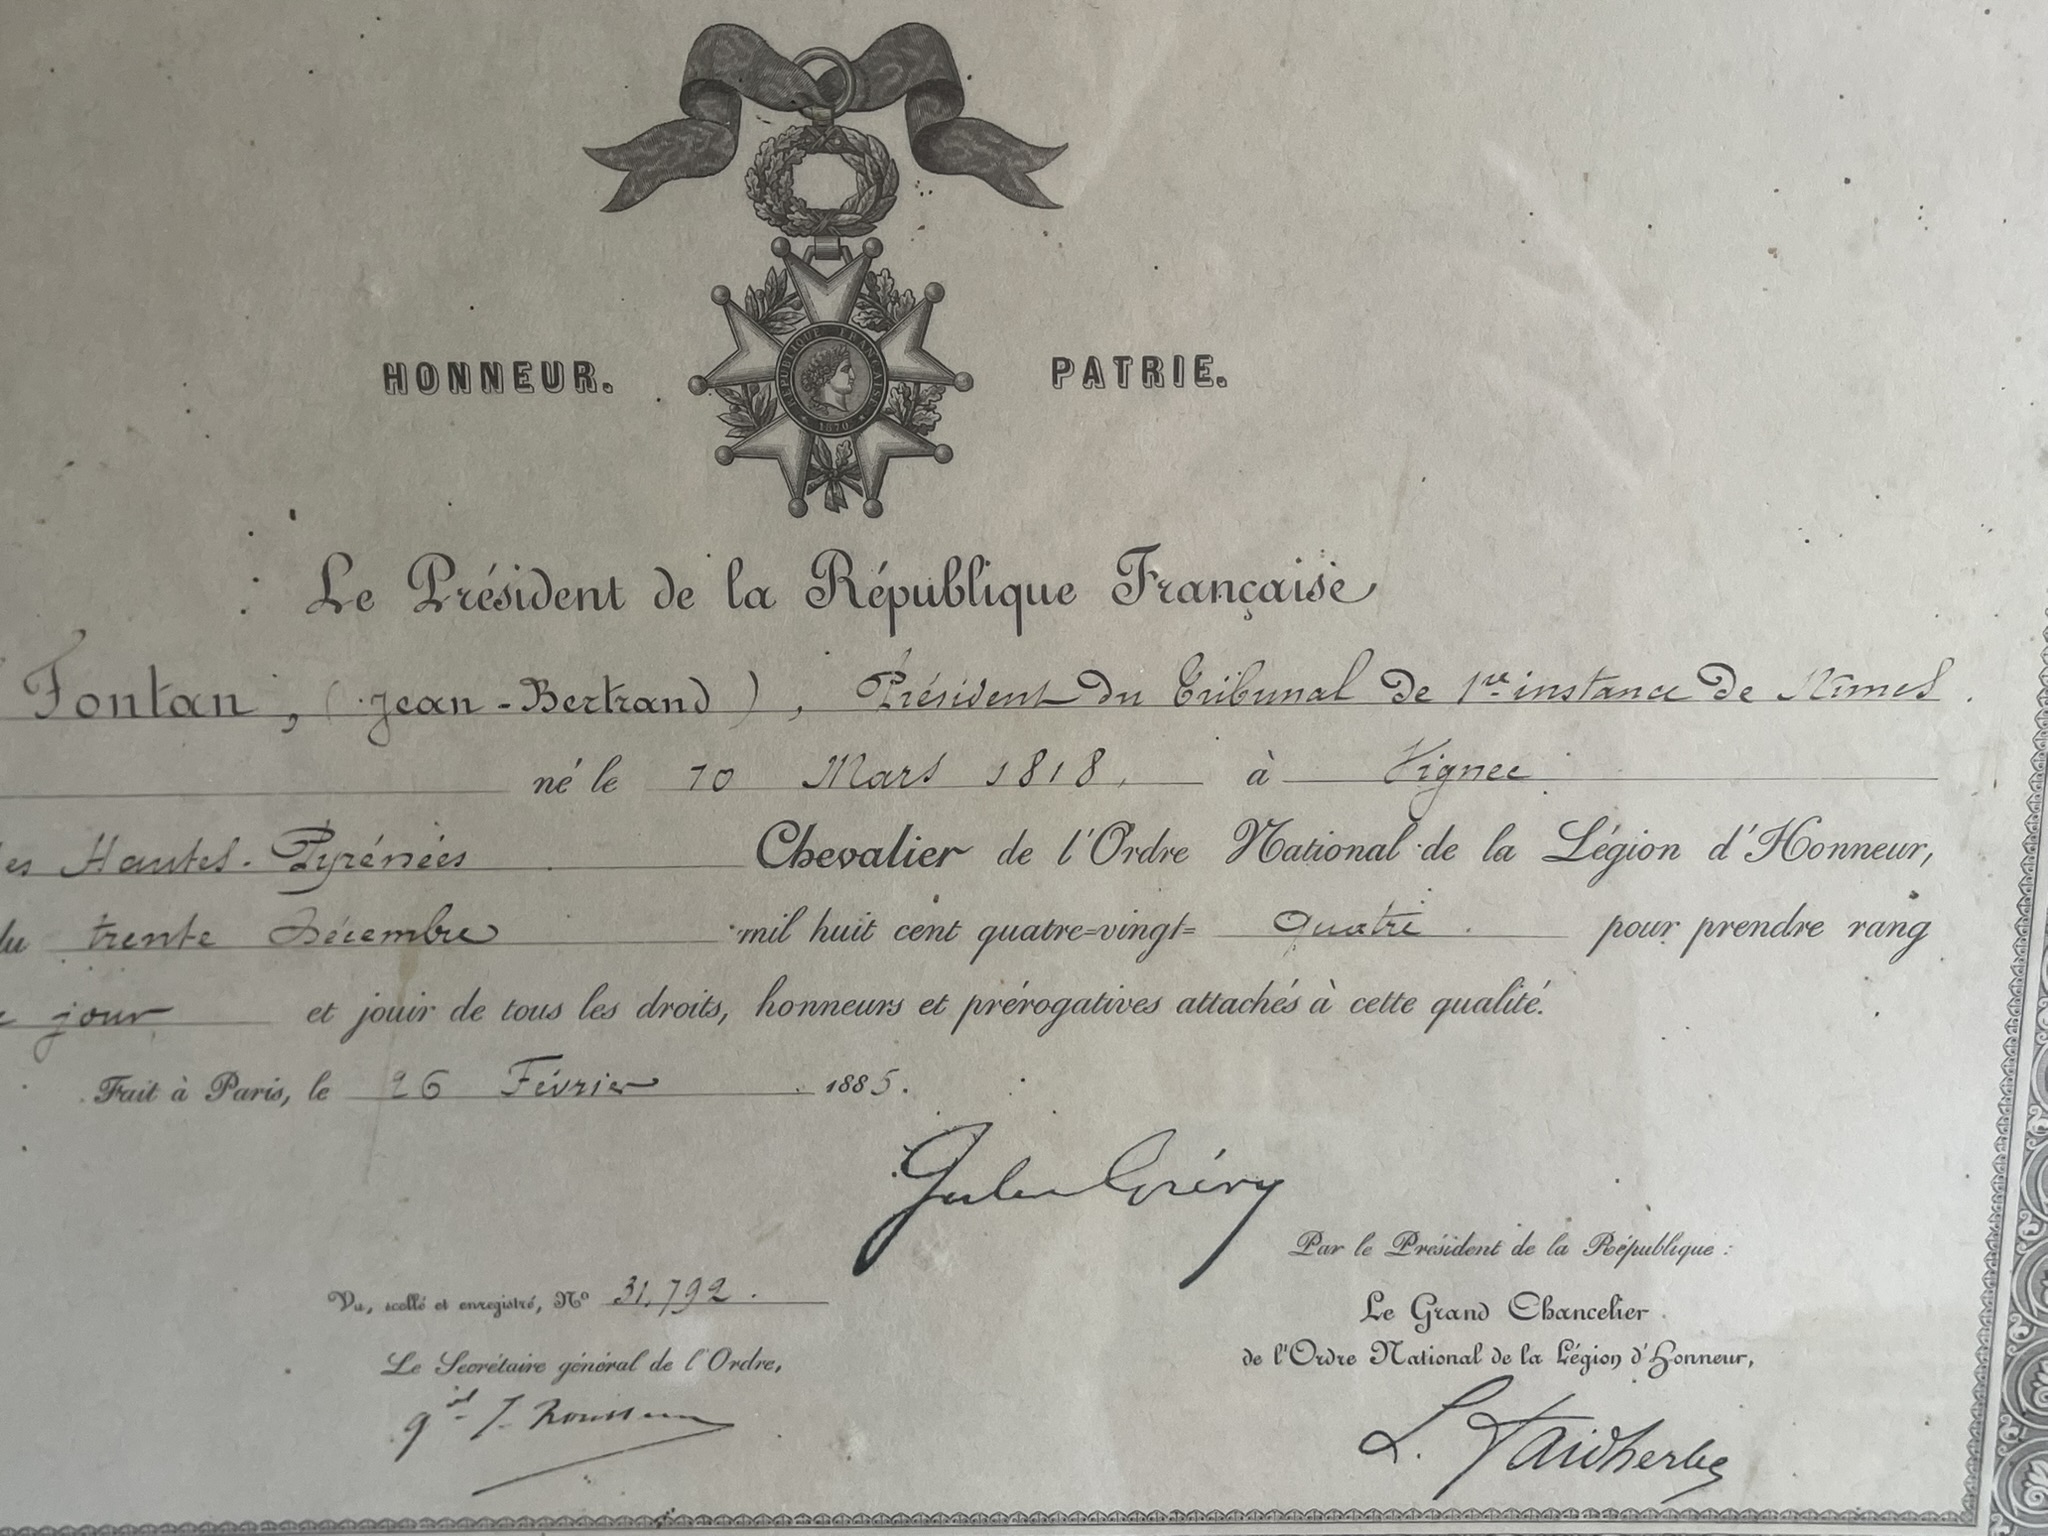 RÉPUBLIQUE FRANÇAISE
1870
HONNEUR. PATRIE.
Le Président de la République Française
Fontan, (Jean-Bertrand), Président du Tribunal de 1re instance de Nîmes.
né le 10 Mars 1818, à Vignec
es Hautes-Pyrénées Chevalier de l'Ordre National de la Légion d'Honneur,
du trente Décembre mil huit cent quatre-vingt-quatre pour prendre rang
jour et jouir de tous les droits, honneurs et prérogatives attachés à cette qualité.
Fait à Paris, le 26 Février 1885.
Jules Grévy
Par le Président de la République :
Vu, scellé et enregistré, No 31,792.
Le Grand Chancelier
de l'Ordre National de la Légion d'Honneur,
Le Secrétaire général de l'Ordre,
gal J. Rousseau
L. Faidherbe